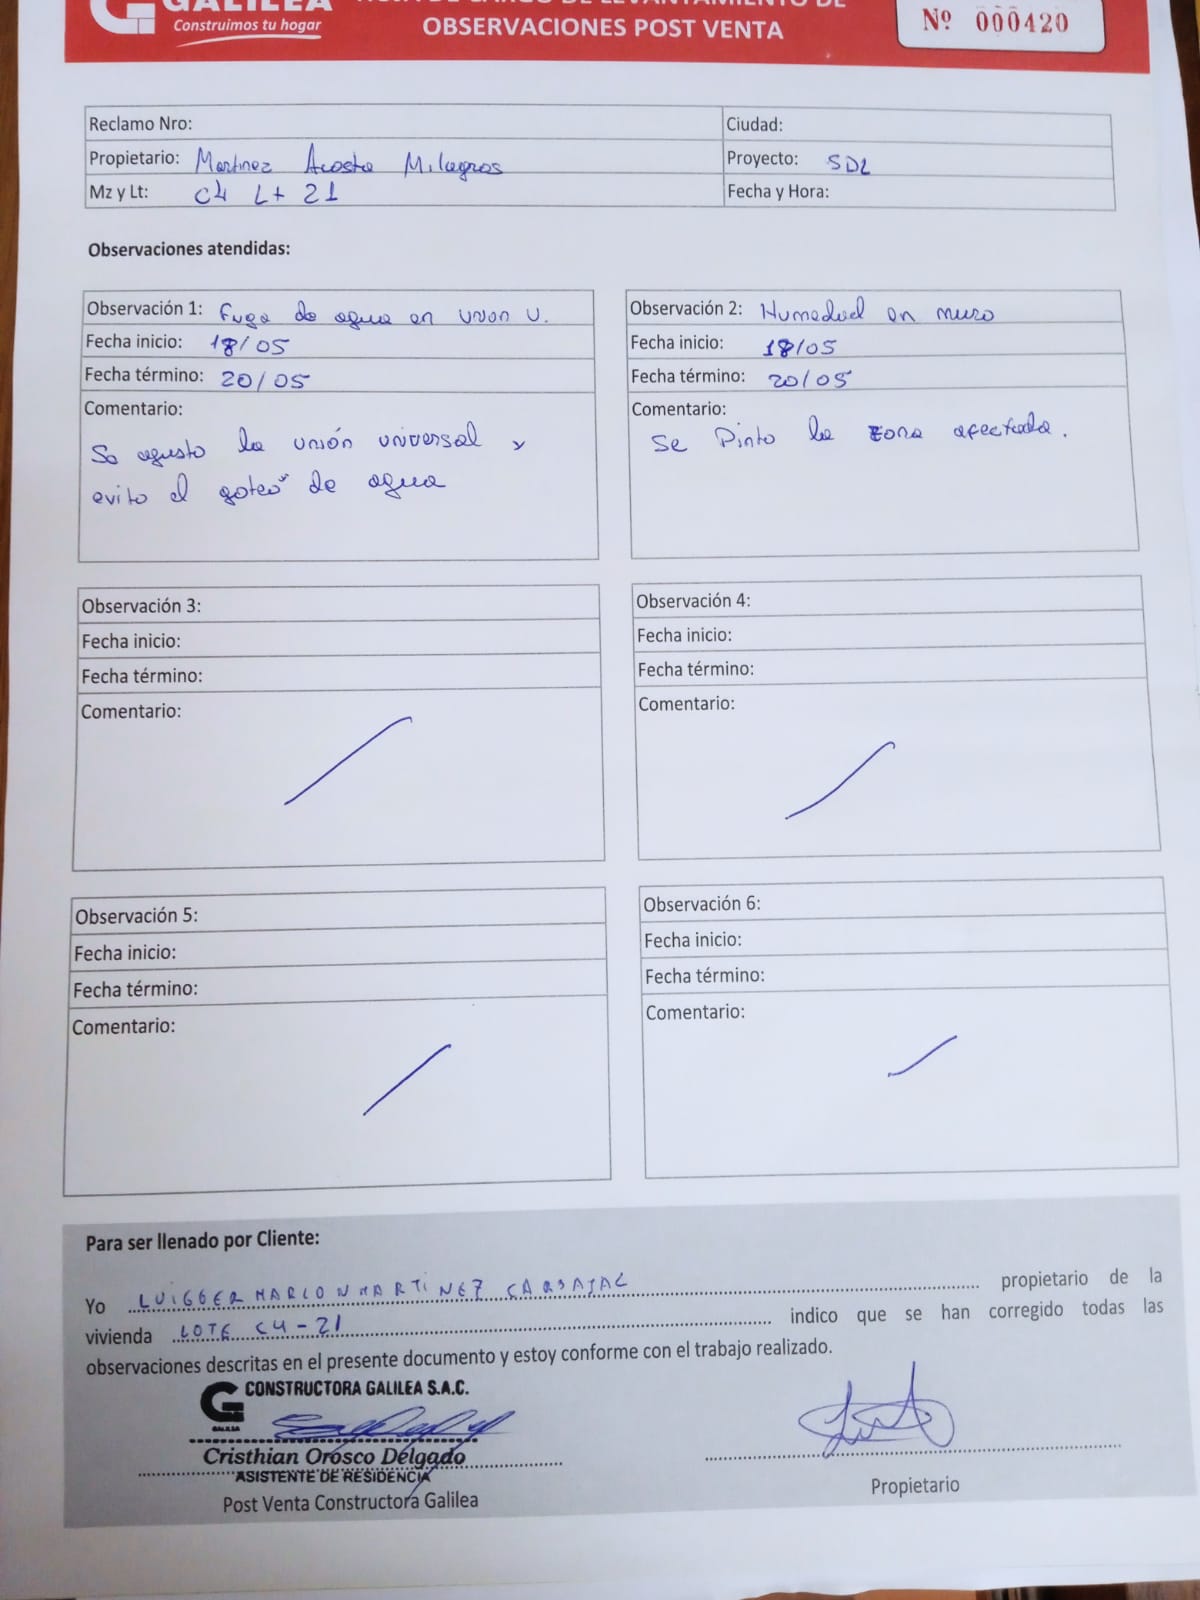 GALILEA
Construimos tu hogar
OBSERVACIONES POST VENTA
Nº 000420
Reclamo Nro:
Ciudad:
Propietario: Martinez Acosta Milagros
Proyecto: SDL
Mz y Lt: C4 Lt 21
Fecha y Hora:
Observaciones atendidas:
Observación 1: Fuga de agua en union U.
Fecha inicio: 18/05
Fecha término: 20/05
Comentario:
Se agusto la unión universal y
evito el goteo de agua
Observación 2: Humedad en muro
Fecha inicio: 18/05
Fecha término: 20/05
Comentario:
Se Pinto la zona afectada.
Observación 3:
Fecha inicio:
Fecha término:
Comentario:
Observación 4:
Fecha inicio:
Fecha término:
Comentario:
Observación 5:
Fecha inicio:
Fecha término:
Comentario:
Observación 6:
Fecha inicio:
Fecha término:
Comentario:
Para ser llenado por Cliente:
Yo LUIGGER MARLON MARTINEZ CARBAJAL propietario de la
vivienda LOTE C4-21 indico que se han corregido todas las
observaciones descritas en el presente documento y estoy conforme con el trabajo realizado.
CONSTRUCTORA GALILEA S.A.C.
GALILEA
Cristhian Orosco Delgado
ASISTENTE DE RESIDENCIA
Post Venta Constructora Galilea
Propietario